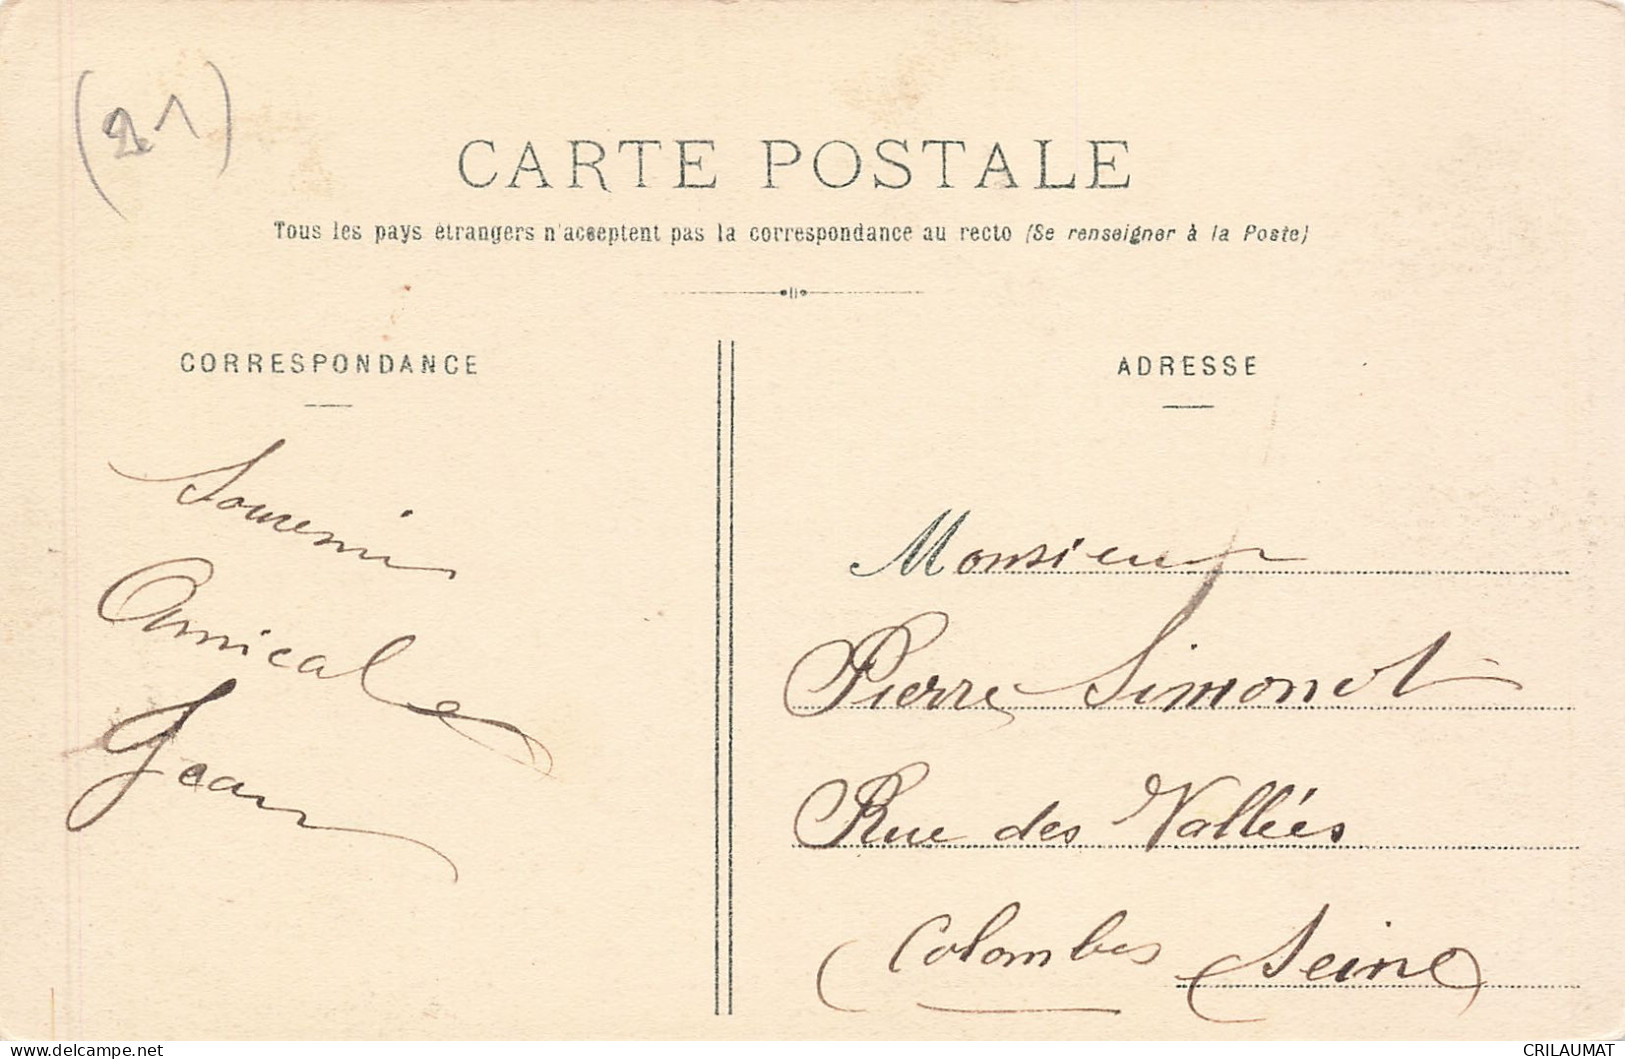 (21)
CARTE POSTALE
Tous les pays étrangers n'acceptent pas la correspondance au recto (Se renseigner à la Poste)
CORRESPONDANCE
Souvenir
Amicale
Jean
ADRESSE
Monsieur
Pierre Simonet
Rue des Vallées
Colombes Seine
CRILAUMAT